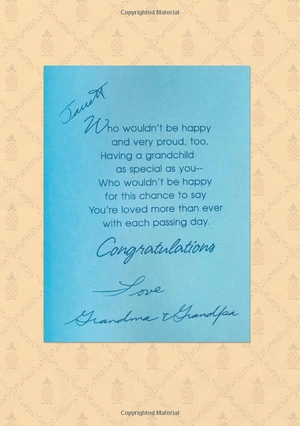 Copyrighted Material
Jarrett
Who wouldn't be happy
and very proud, too,
Having a grandchild
as special as you--
Who wouldn't be happy
for this chance to say
You're loved more than ever
with each passing day.
Congratulations
Love
Grandma & Grandpa
Copyrighted Material